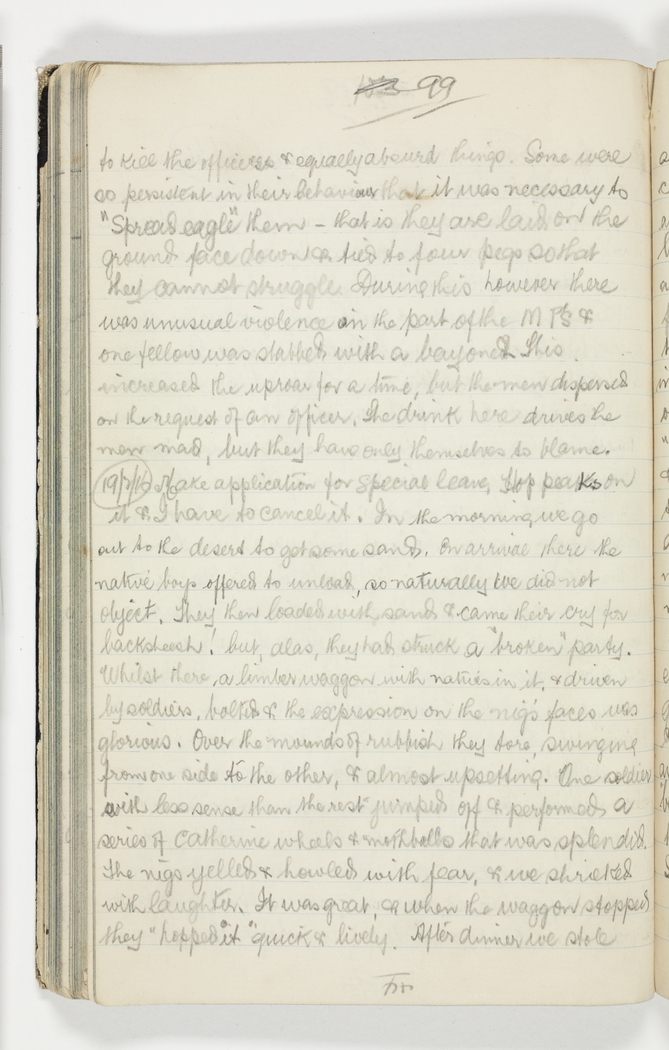 99
to kill the officers & equally absurd things. Some were
so persistent in their behaviour that it was necessary to
"Spread eagle" them - that is they are laid on the
ground face down & tied to four pegs so that
they cannot struggle. During this however there
was unusual violence on the part of the M Ps &
one fellow was stabbed with a bayonet. This
increased the uproar for a time, but the men dispersed
on the request of an officer. The drink here drives the
men mad, but they have only themselves to blame.
Make application for special leave, Hop peaks on
it & I have to cancel it. In the morning we go
out to the desert to get some sand. On arrival there the
native boys offered to unload, so naturally we did not
object. They then loaded with sand & came their cry for
backsheesh! but, alas, they had struck a "broken" party.
Whilst there, a limber waggon with natives in it, & driven
by soldiers, bolted & the expression on the nig's faces was
glorious. Over the mounds of rubbish they tore, swinging
from one side to the other, & almost upsetting. One soldier
with less sense than the rest jumped off & performed a
series of Catherine wheels & mothballs that was splendid.
The nigs yelled & howled with fear, & we shrieked
with laughter. It was great, & when the waggon stopped
they "hopped it" quick & lively. After dinner we stole